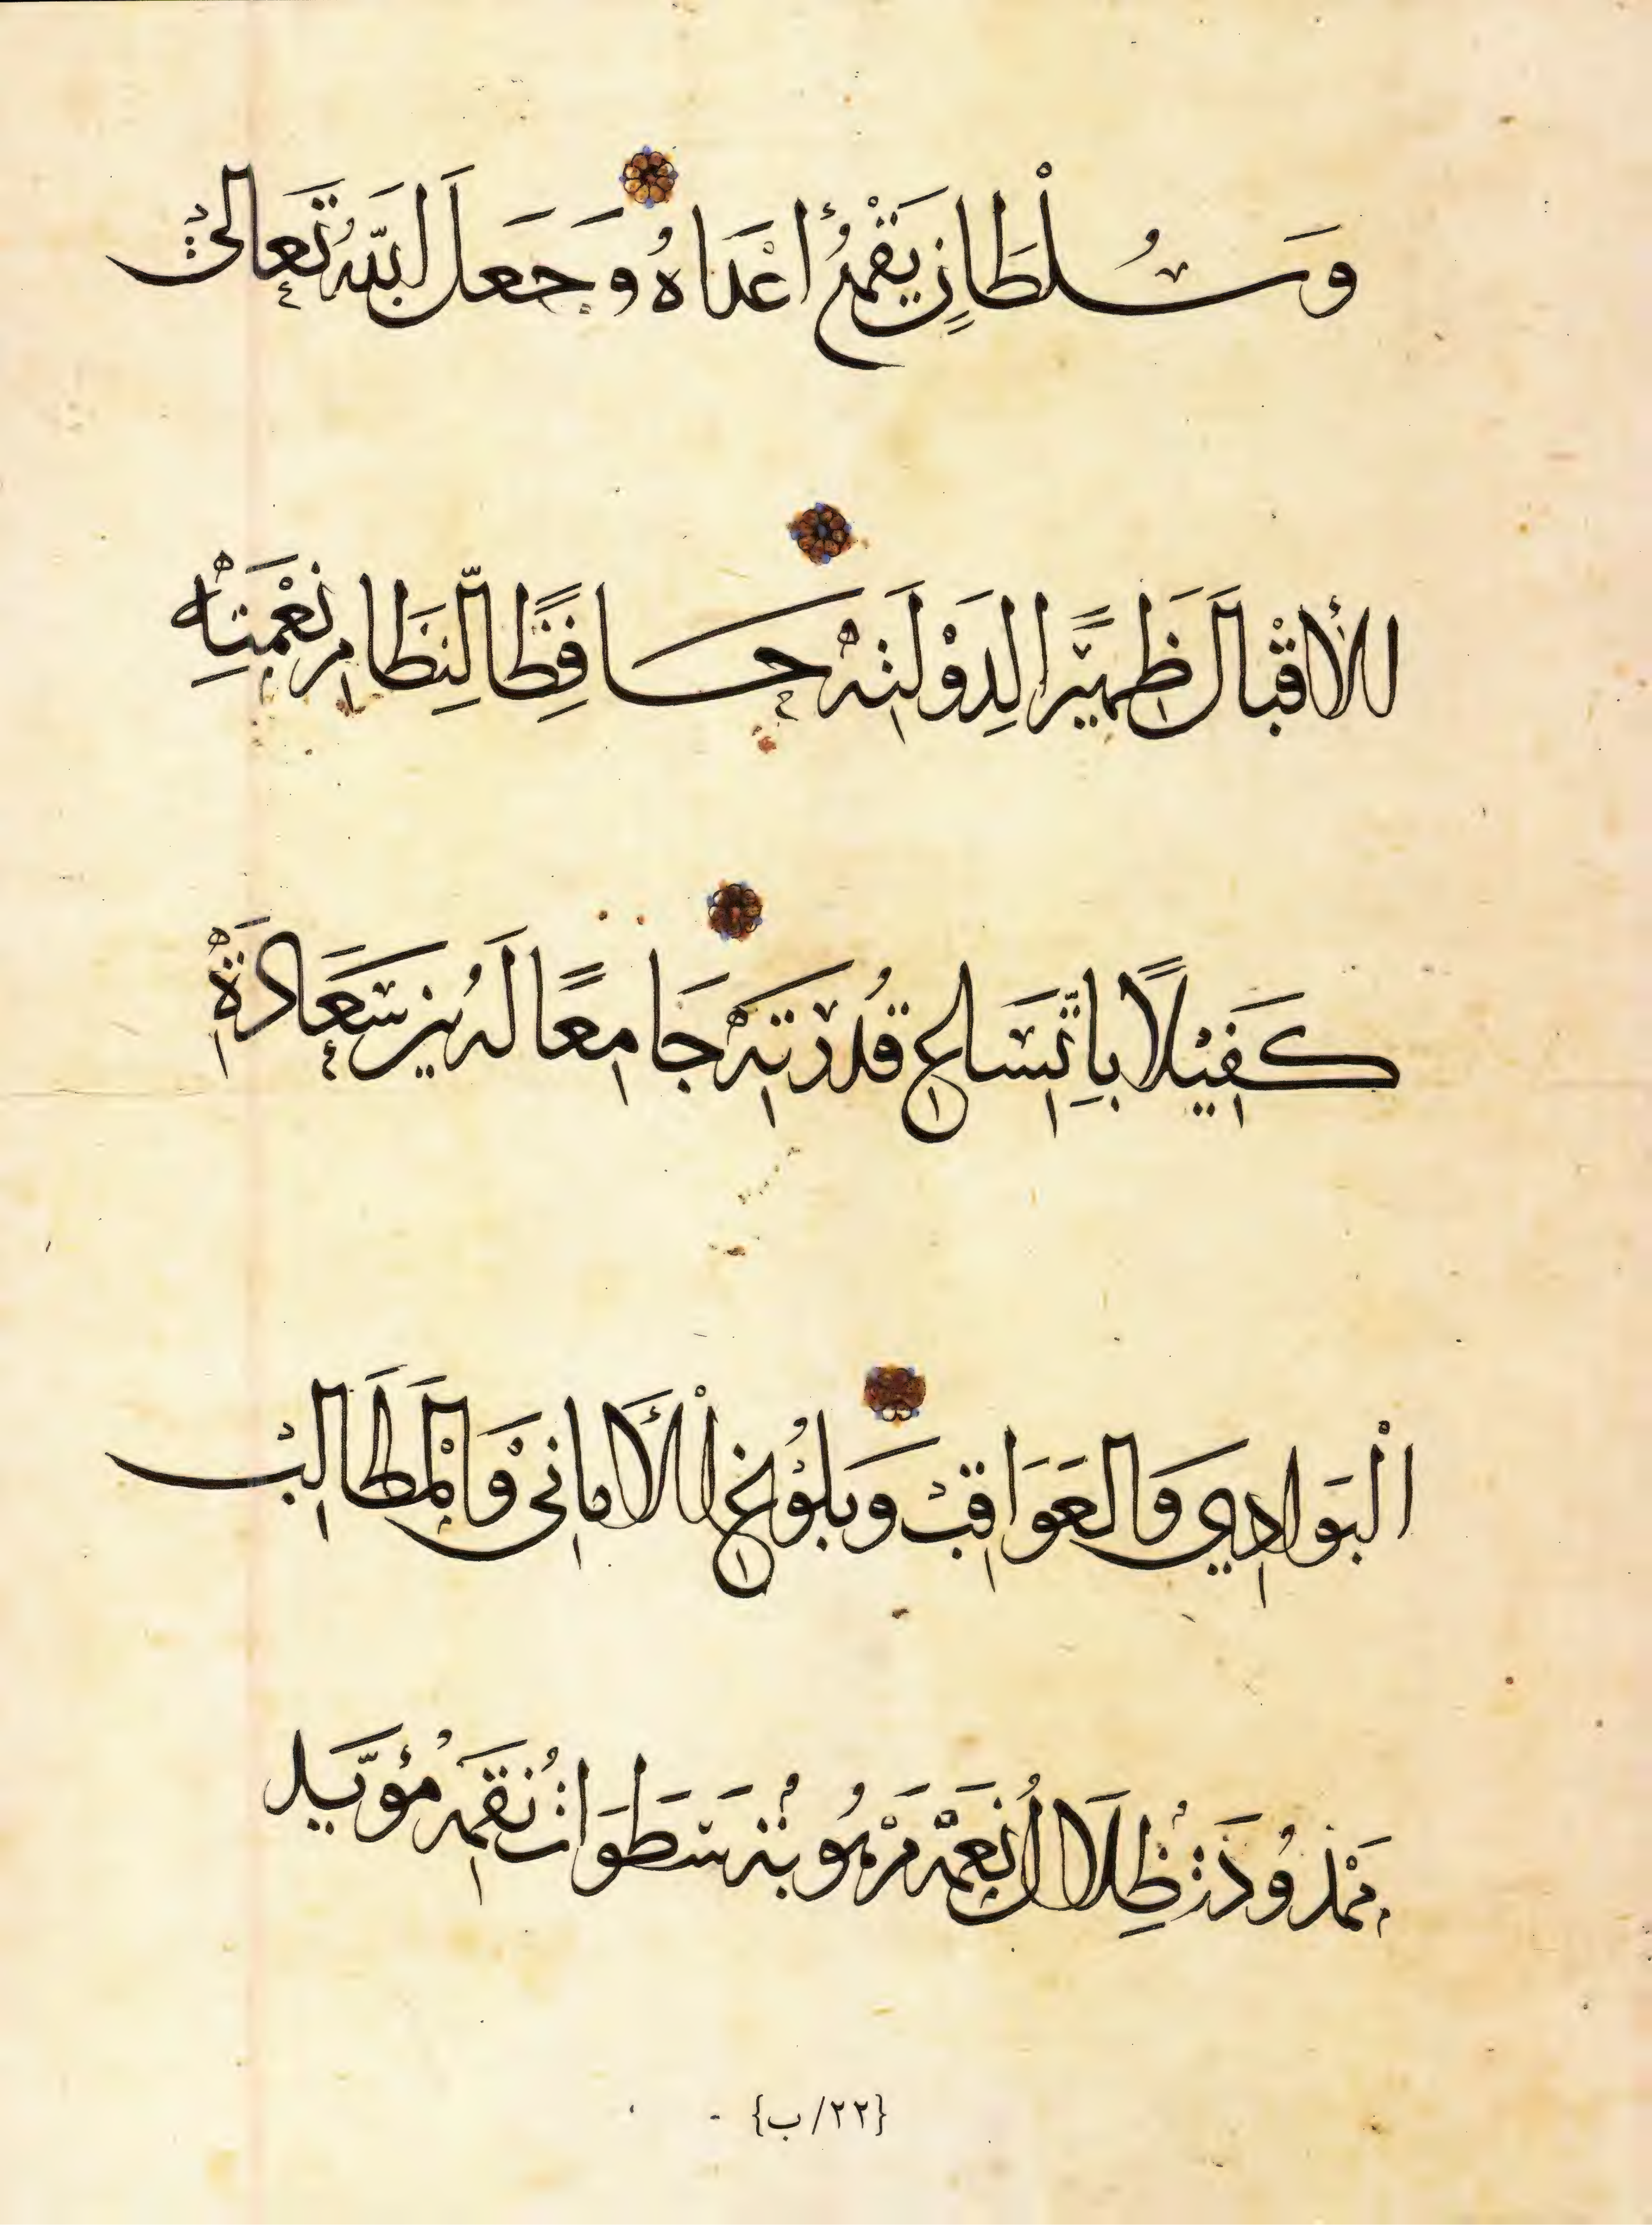 وَسُلْطَانٍ يَقْمَعُ أَعْدَاهُ وَجَعَلَ اللّٰهُ تَعَالىٰ
الْأِقْبَالَ ظَهيْرًا لِدَوْلَتِهْ حَافِظًا لِّنِظَامِ نِعْمَتِهْ
كَفِيْلًا بِاتِّسَاعِ قُدْرَتِهْ جَامِعًا لَهُ بَيْنَ سَعَادَةِ
الْبَوَادِي وَالعَوَاقِبْ وَبُلُوْغِ الْأَمَانِىْ وَالْمَطَالِبْ
مَمْدُودَةٌ ظِلَالُ نِعَمِهْ مَرْهُوبَةٌ سَطَوَاتُ نِقَمِهْ مُؤَيَّد
{٢٢/ب}